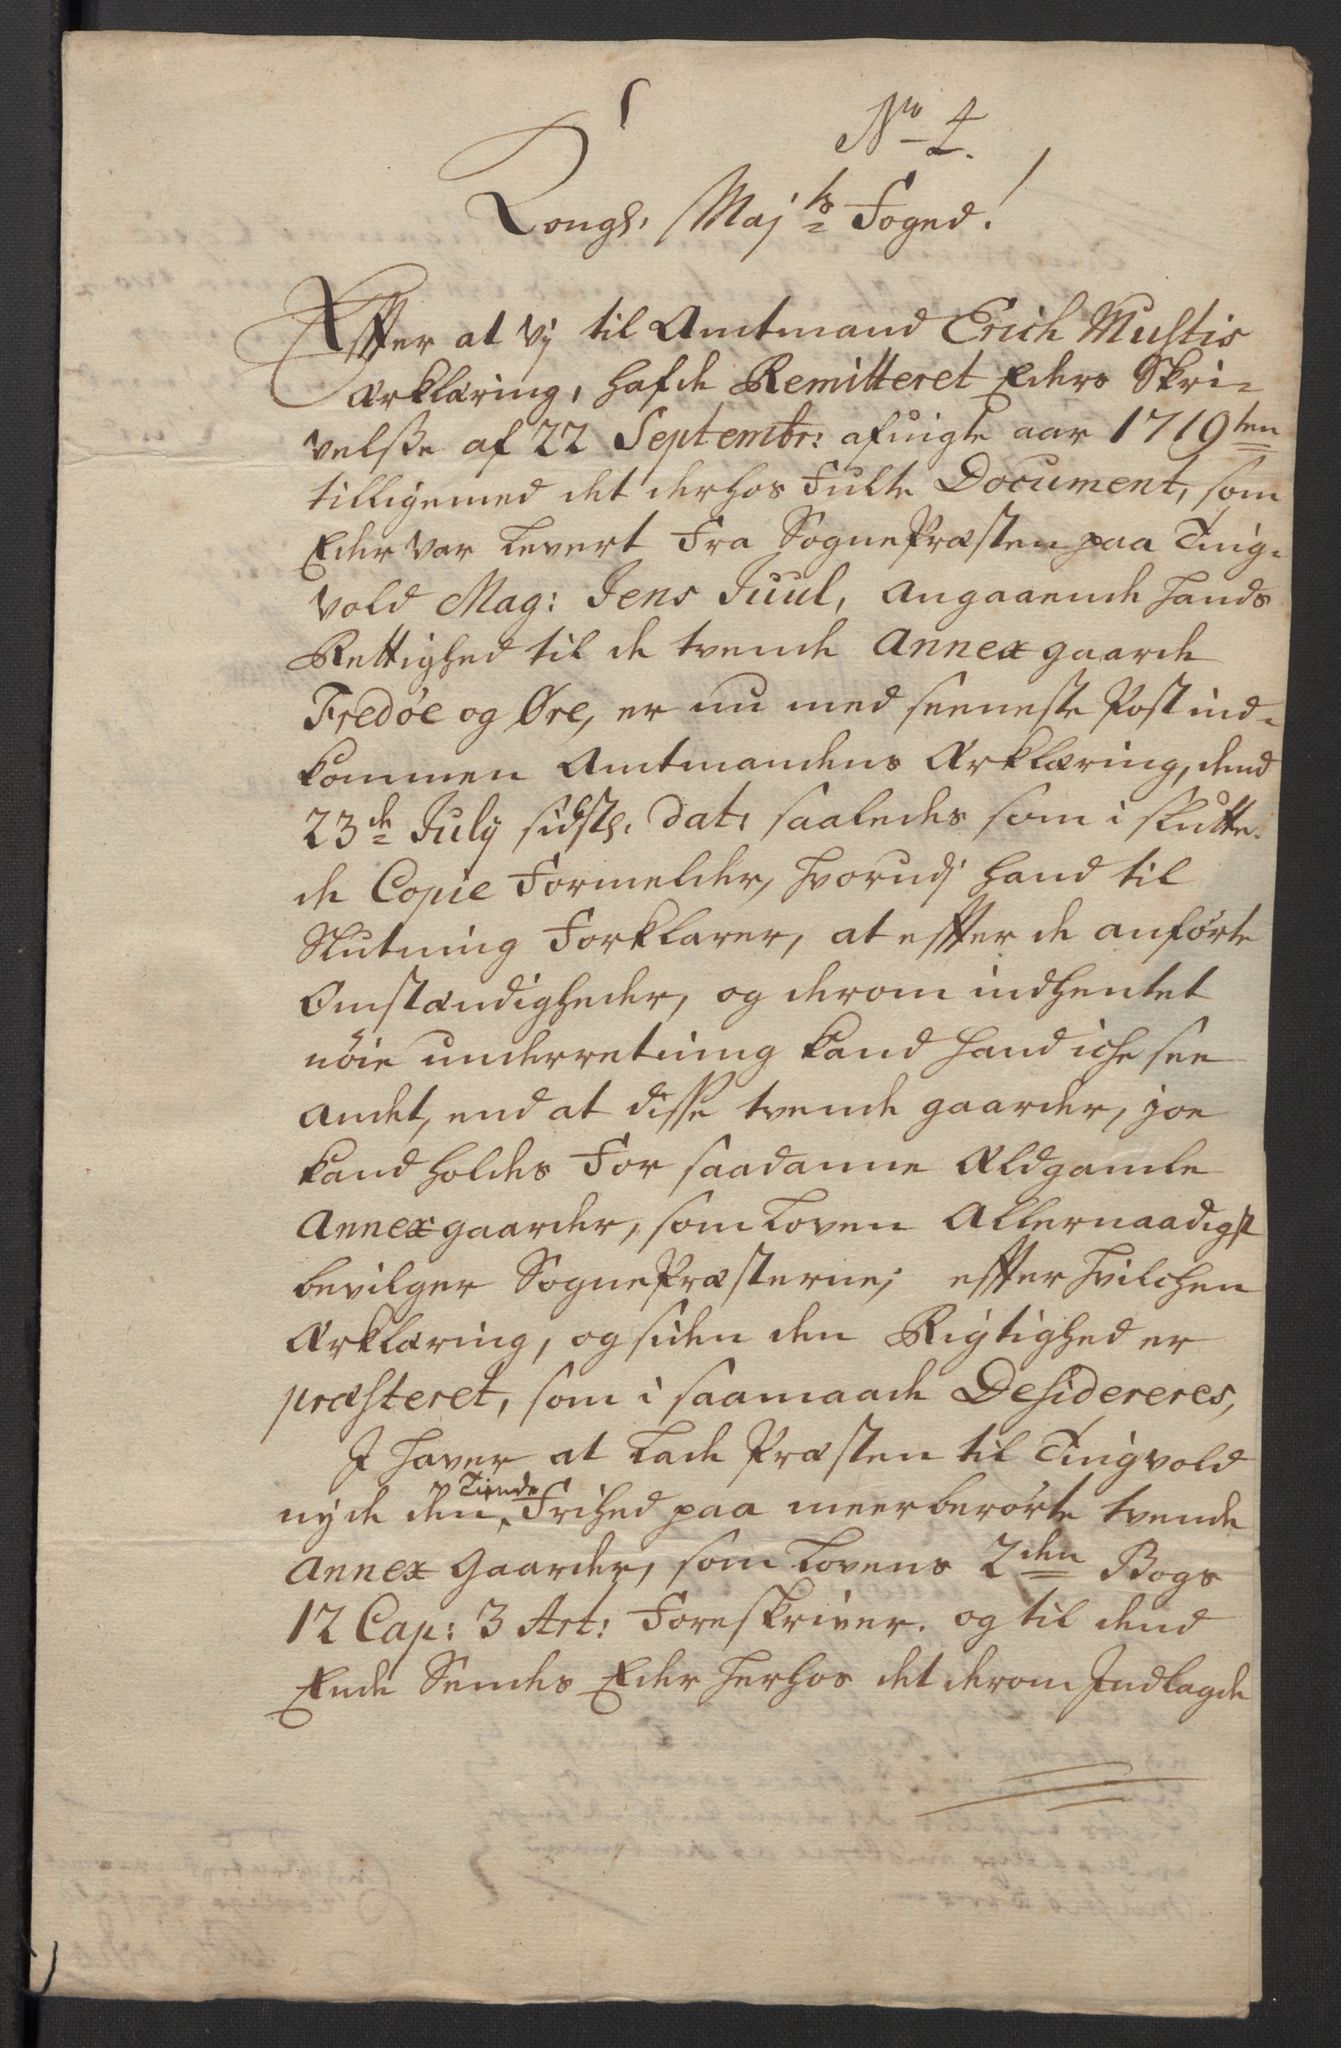 No 4.
Kongl. Majts Foged!
Effter at vj til Amtmand Erich Must is
Ærklæring, hafde Remitteret Eders Skri-
velsse af 22 Septembr: afuigte aar 1719ten
tilligemed det derhos fulte Document, som
Eder var levert fra SognePræsten paa Ting-
vold Mag: Jens Juul, angaaende hands
Rettighed til de tvende Annex gaarde
Fredøe og Øre, er nu med seeneste Post ind-
kommen Amtmandens Ærklæring, dend
23de July sidstl. dat: saaledes som i slutte-
de Copie formelder, hvorudj hand til
Slutning forklarer, at effter de anførte
Omstændigheder, og derom indhentet
nøie underretning kand hand iche see
andet, end at disse tvende gaarder, joe
kand holdes for saadanne Ældgamle
Annex gaarder, som Loven Allernaadigst
bevilger SognePræsterne; effter hvilchen
Ærklæring, og siden den Rigtighed er
præsteret, som i saamaade Desidereres,
J haver at lade Præsten til Tingvold
nyde den Tiende Frihed paa meerberørte tvende
Annex Gaarder, som Lovens 2den Bogs
12 Cap: 3 Art: foreskriver. og til dend
Ende Sendes Eder herhos det derom Jndlagde